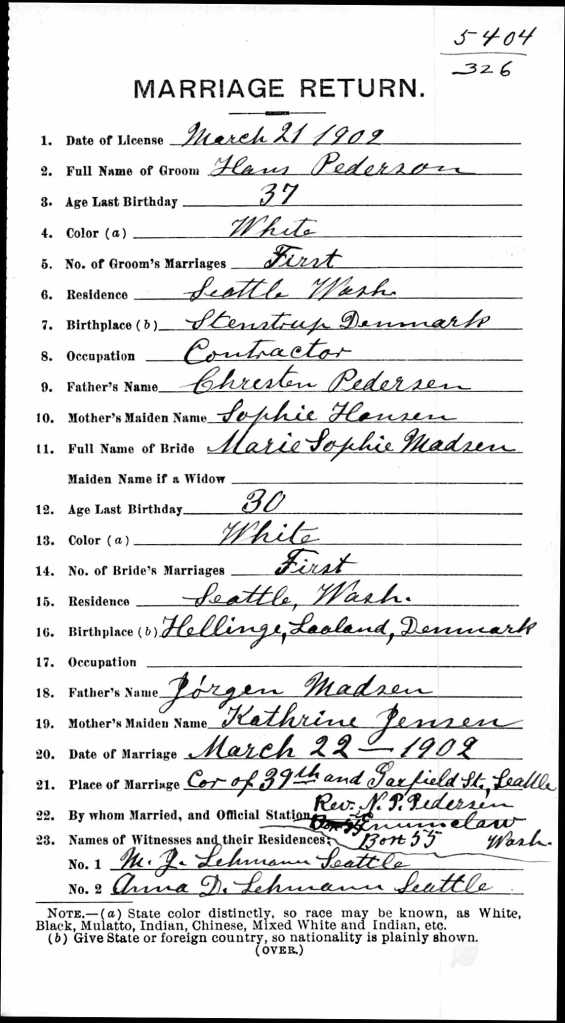 5404
326
MARRIAGE RETURN.
1. Date of License March 21 1902
2. Full Name of Groom Hans Pederson
3. Age Last Birthday 37
4. Color (a) White
5. No. of Groom's Marriages First
6. Residence Seattle Wash.
7. Birthplace (b) Stenstrup Denmark
8. Occupation Contractor
9. Father's Name Chresten Pedersen
10. Mother's Maiden Name Sophie Hansen
11. Full Name of Bride Marie Sophie Madsen
Maiden Name if a Widow
12. Age Last Birthday 30
13. Color (a) White
14. No. of Bride's Marriages First
15. Residence Seattle, Wash.
16. Birthplace (b) Hellinge, Laaland, Denmark
17. Occupation
18. Father's Name Jörgen Madsen
19. Mother's Maiden Name Kathrine Jensen
20. Date of Marriage March 22 — 1902
21. Place of Marriage Cor of 39th and Garfield St., Seattle
Rev. N. P. Pedersen
22. By whom Married, and Official Station Enumclaw
23. Names of Witnesses and their Residences: Box 55 Wash.
No. 1 M. J. Lehmann Seattle
No. 2 Anna D. Lehmann Seattle
NOTE.—(a) State color distinctly, so race may be known, as White,
Black, Mulatto, Indian, Chinese, Mixed White and Indian, etc.
(b) Give State or foreign country, so nationality is plainly shown.
(OVER.)